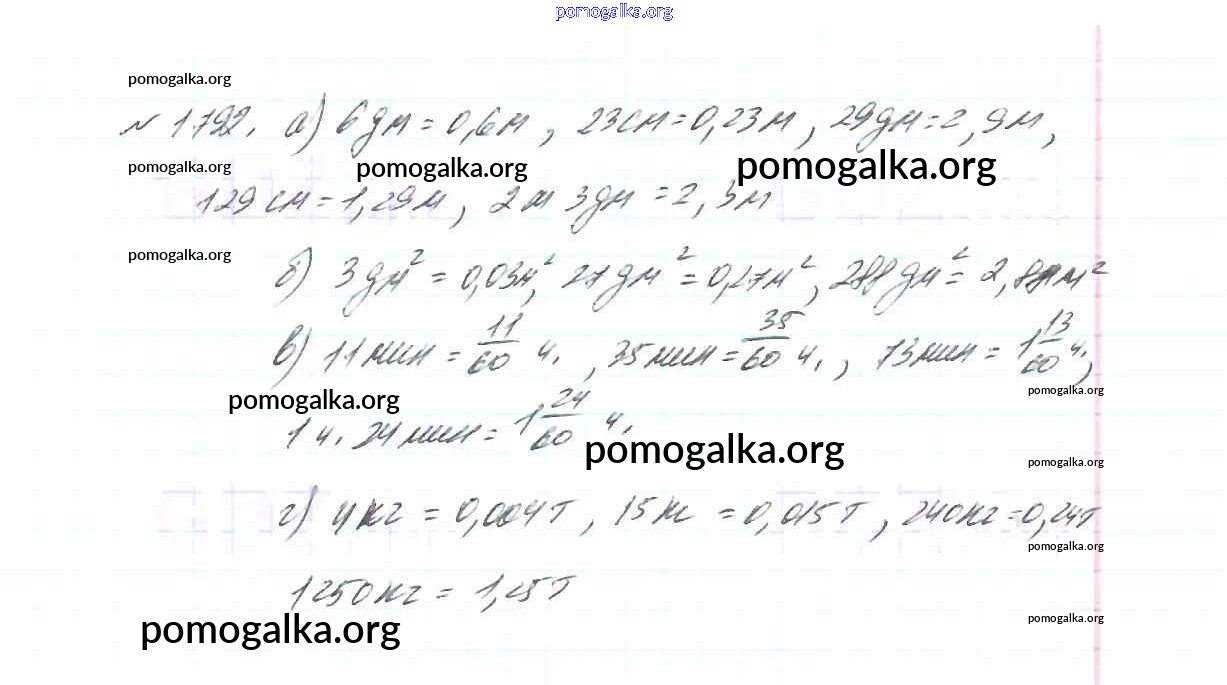 pomogalka.org
pomogalka.org
№ 1792. а) 6 дм = 0,6 м, 23 см = 0,23 м, 29 дм = 2,9 м,
pomogalka.org pomogalka.org pomogalka.org
129 см = 1,29 м, 2 м 3 дм = 2,3 м
pomogalka.org
б) 3 дм² = 0,03 м², 27 дм² = 0,27 м², 288 дм² = 2,88 м²
в) 11 мин = 11/60 ч., 35 мин = 35/60 ч., 73 мин = 1 13/60 ч.,
pomogalka.org pomogalka.org
1 ч. 24 мин = 1 24/60 ч.
pomogalka.org pomogalka.org
г) 4 кг = 0,004 т, 15 кг = 0,015 т, 240 кг = 0,24 т
pomogalka.org
1250 кг = 1,25 т
pomogalka.org pomogalka.org